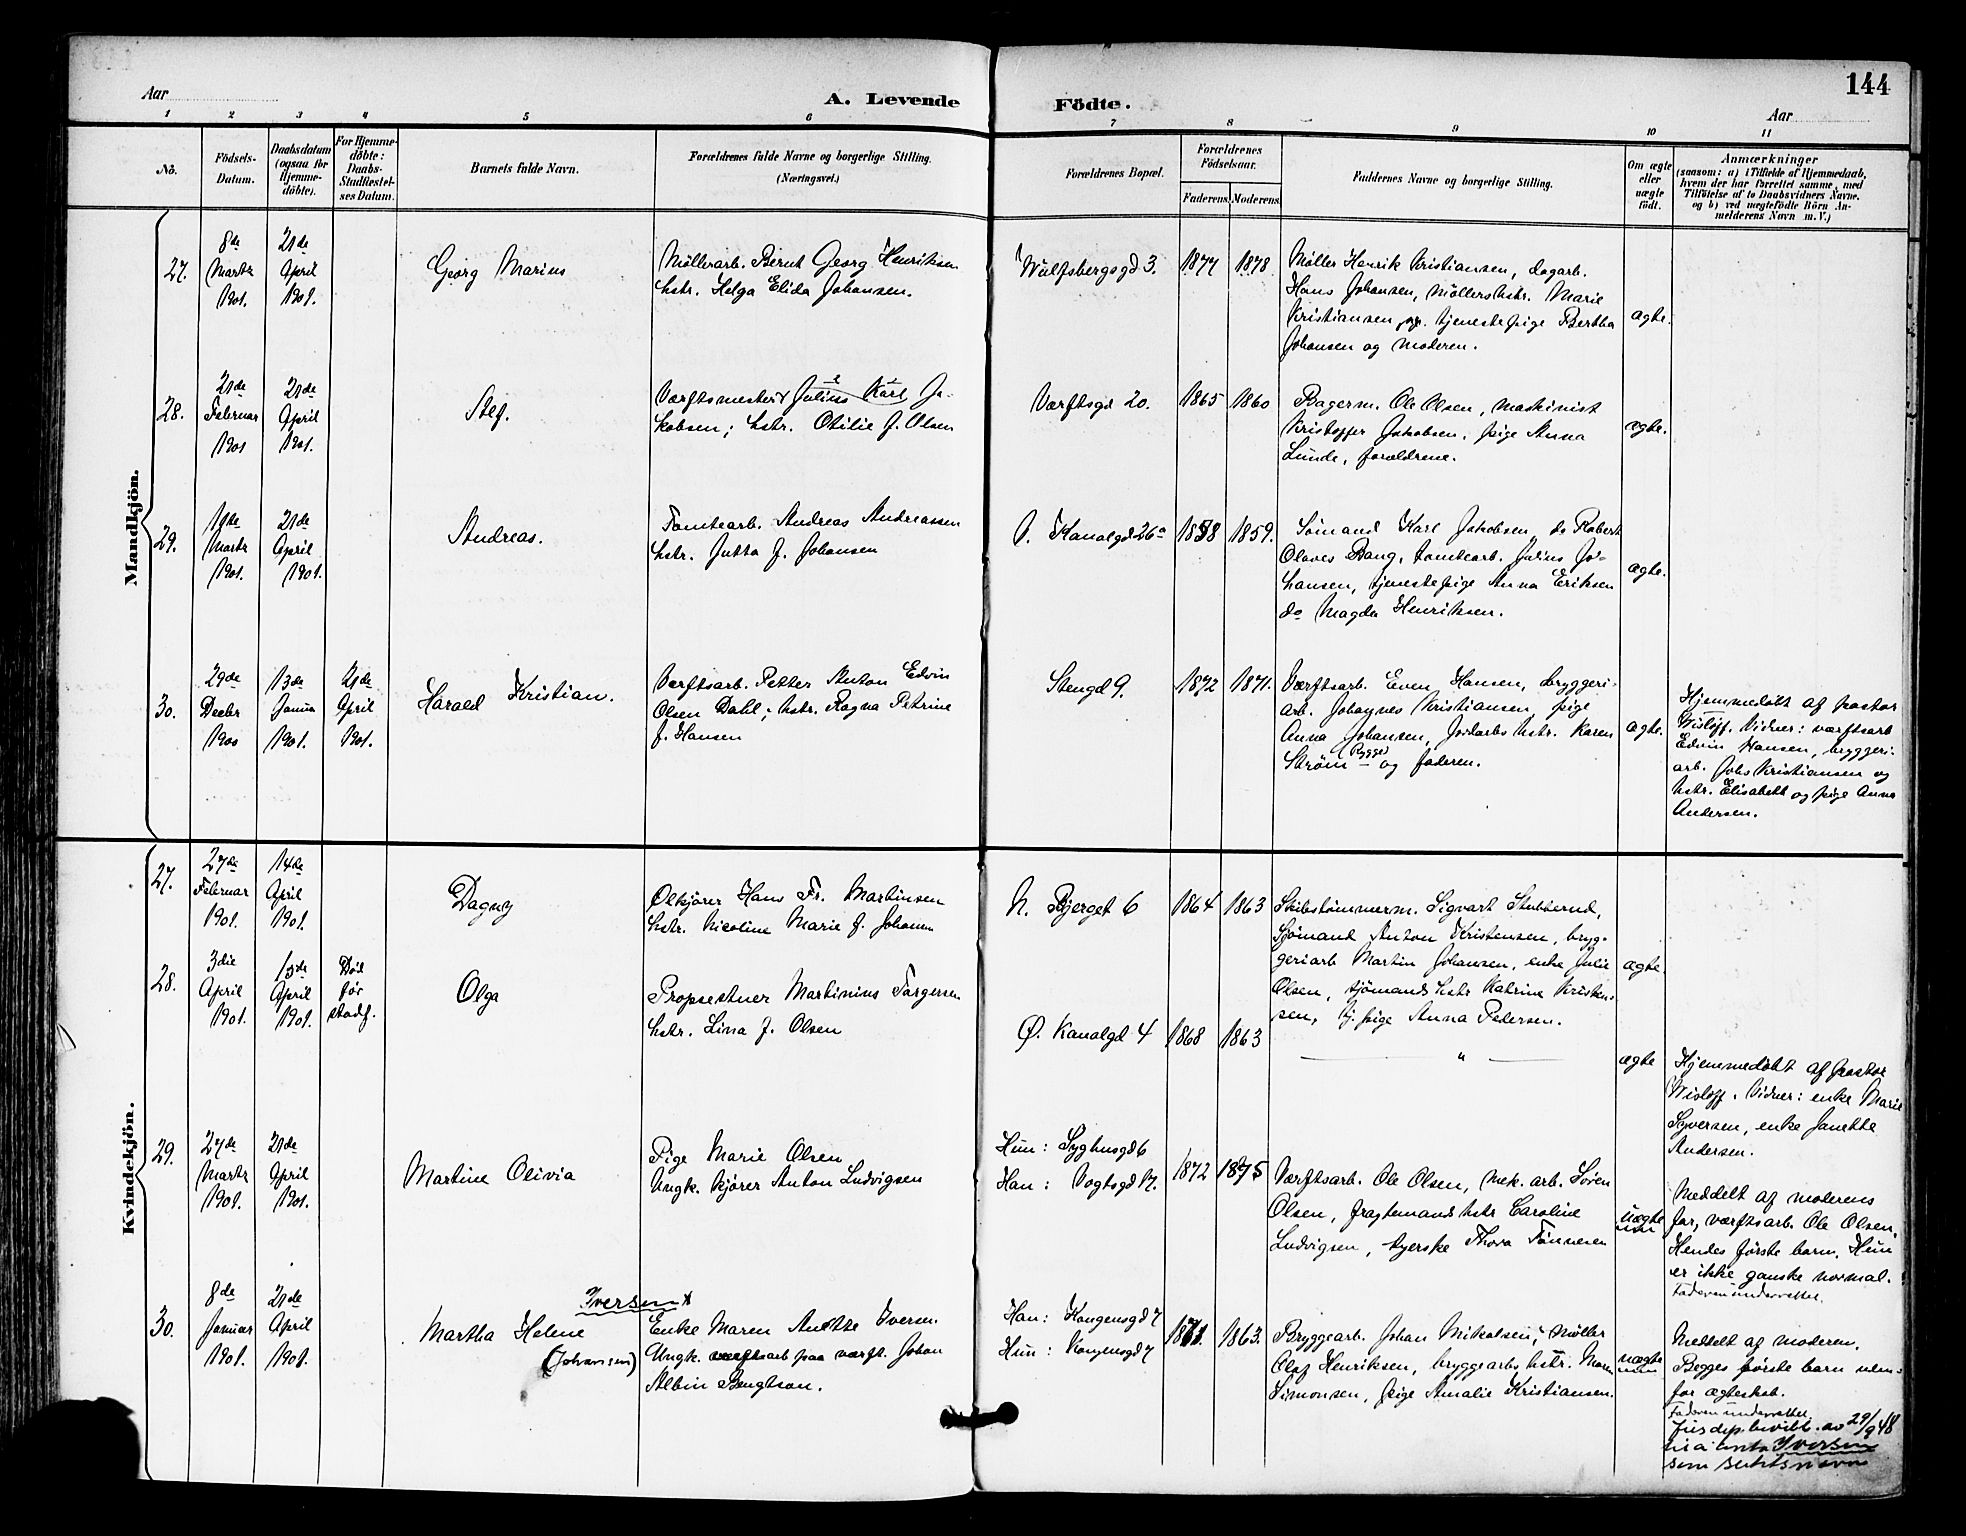 144
Aar
A. Levende Födte.
Aar
1 2 3 4 5 6 7 8 9 10 11
No.
Födsels-
Datum.
Daabsdatum
(ogsaa for
Hjemme-
döbte).
For Hjemme-
döbte:
Daabs-
Stadfæstel-
ses Datum.
Barnets fulde Navn.
Forældrenes fulde Navne og borgerlige Stilling.
(Næringsvei.)
Forældrenes Bopæl.
Forældrenes
Födselsaar.
Faderens Moderens
Faddernes Navne og borgerlige Stilling.
Om ægte
eller
uægte
födt.
Anmærkninger
(saasom: a) i Tilfælde af Hjemmedaab,
hvem der har forrettet samme, med
Tilföielse af to Daabsvidners Navne.
og b) ved uægtefödte Börn An-
melderens Navn m. V.)
Mandkjön.
27.
8de
Marts
1901.
21de
April
1901.
Georg Marius
Möllerarb. Bernt Georg Henriksen
hstr. Helga Elida Johansen.
Wulfsbergsgd 3.
1877
1878.
Möller Henrik Kristiansen, dagarb.
Hans Johansen, möllershstr. Marie
Kristiansen, tjenestepige Bertha
Johansen og moderen.
ægte.
28.
21de
Februar
1901
21de
April
1901.
Værftsmester Julius Karl Ja-
kobsen; hstr. Otilie f. Olsen
Værftsgd 20.
1865
1860
Bagerm. Ole Olsen, maskinist
Kristoffer Jakobsen, pige Anna
Lunde, forældrene.
ægte.
29.
Marts
1901.
21de
April
1901.
Andreas.
Tomtearb. Andreas Andreassen
hstr. Jutta f. Johansen
Ö. Kanalgd 26a
1858
1859.
Sömand Karl Jakobsen, do Robert
Olaves Bang, tomtearb. Julius Jo-
hansen, tjenestepige Anna Eriksen
do Magda Henriksen.
ægte.
30.
29de
Decbr
1900
13de
Januar
1901.
21de
April
1901.
Harald Kristian.
Værftsarb. Petter Anton Edvin
Olsen Dahl; hstr. Ragna Petrine
f. Hansen
Stengd 9.
1872
1871.
Værftsarb. Even Hansen, bryggeri-
arb. Johannes Kristiansen pige
Anna Johansen, Jordarbs hstr. Karen
Ström (Bygge) og faderen.
ægte.
Hjemmedöbt af pastor
Wislöff. Vidner: værftsarb
Edvin Hansen, bryggeri-
arb. Johs Kristiansen og
hstr. Elisabeth og pige Anna
Andersen.
Kvindekjön.
27.
27de
Februar
1901.
14de
April
1901.
Dagny
Ölkjörer Hans Fr. Martinsen
hstr. Nicoline Marie f. Johansen
N. Bjerget 6
1864
1863
Skibstömmerm. Sigvart Stubberud,
Sjömand Anton Kristensen, bryg-
geriarb Martin Johansen, enke Julie
Olsen, sjömands hstr Katrine Kristen-
sen, tj. pige Anna Pedersen.
ægte.
28.
3die
April
1901.
April
1901.
Död
för
stadf.
Olga
Propsestuer Martinius Torgersen
hstr. Lina f. Olsen
Ø. Kanalgd 4
1868
1863
"
ægte
Hjemmedöbt af pastor
Wislöff. Vidner: enke Marie
Syversen, enke Janette
Andersen.
29.
27de
Marts
1901.
21de
April
1901.
Martine Olivia
Pige Marie Olsen
Ungk. kjörer Anton Ludvigsen
Hun: Syghusgd 6
Han: Vogtsgd 17.
1872
1875
Værftsarb. Ole Olsen, mek. arb. Sören
Olsen, fragtemands hstr Caroline
Ludvigsen, syerske Thora Tönnesen
uægte
Meddelt af moderens
far, værftsarb. Ole Olsen,
Hendes förste barn. Hun
er ikke ganske normal.
Faderen underrettet.
30.
8de
Januar
1901.
21de
April
1901.
Iversen*
Martha Helene
(Johansen)
Enke Maren Anette Iversen.
Ungk. værftsarb paa værft. Johan
Albin Bengtson.
Han: Kongensgd 7
Hun: Kongensgd 7
1863.
Bryggearb. Johan Mikalsen, Möller
Olaf Henriksen, bryggearbs hstr. Maren
Simonsen, pige Amalie Kristiansen.
uægte
Meddelt af moderen.
Begges förste barn uden-
for ægteskab.
Faderen underrettet.
Jusdep. bevilt. av 29/9 48
til å anta Iversen
som slektsnavn